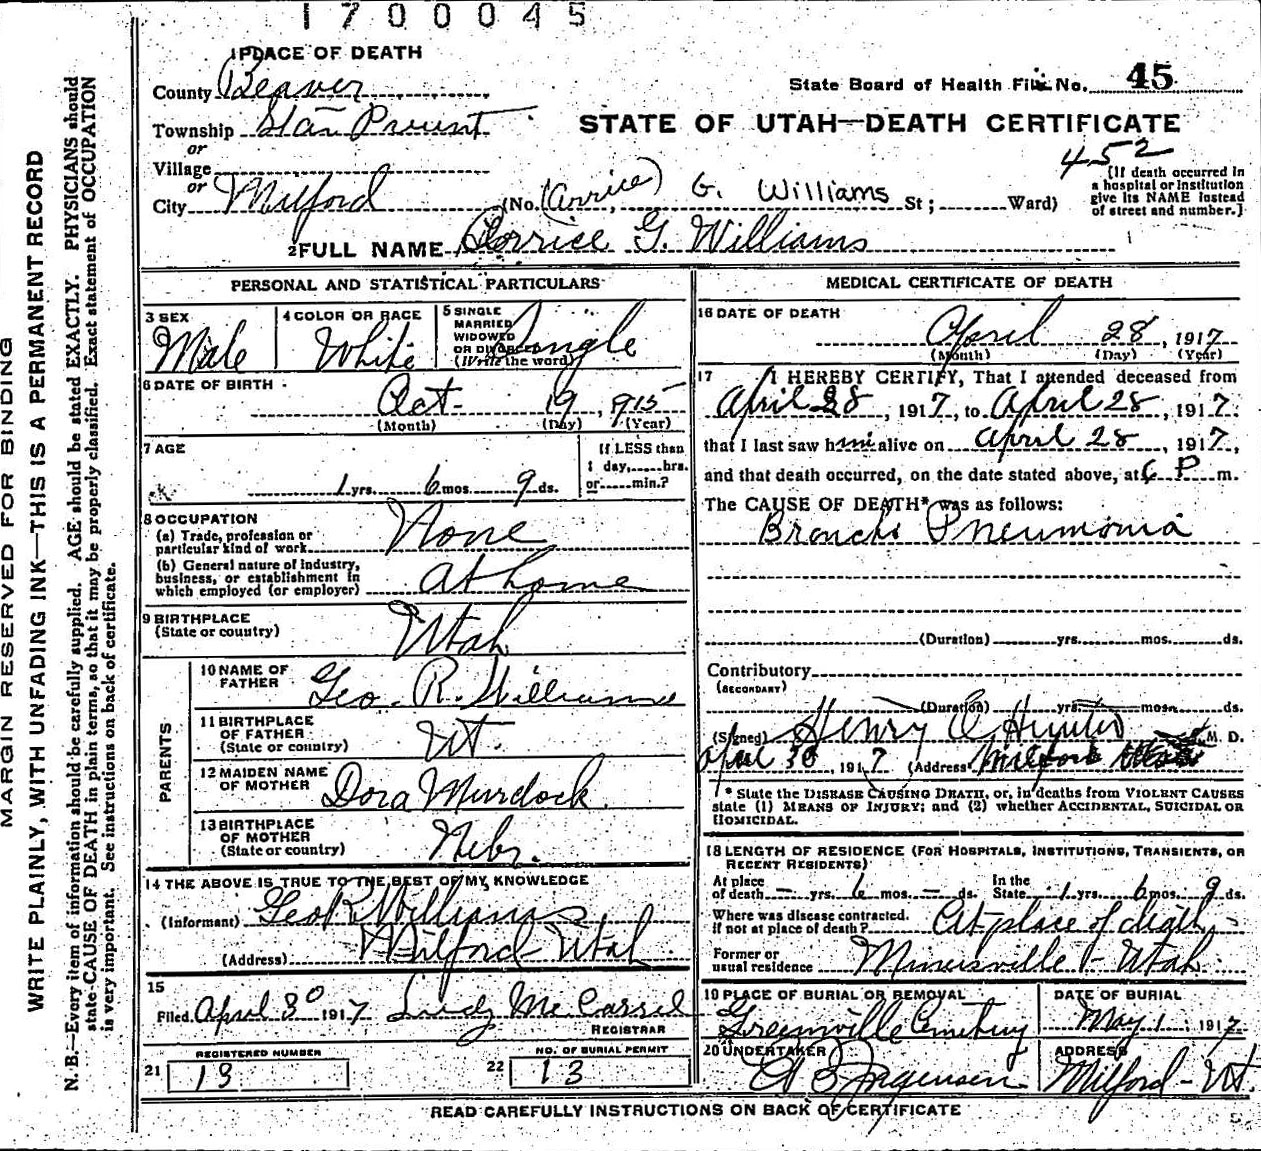 1700045
1 PLACE OF DEATH
County Beaver
State Board of Health File No. 45
Township Star Precint
STATE OF UTAH—DEATH CERTIFICATE
or
Village
452
or
City Milford (No. (Orrice) G. Williams St; Ward)
[If death occurred in
a hospital or institution
give its NAME instead
of street and number.]
2 FULL NAME Orrice G. Williams
PERSONAL AND STATISTICAL PARTICULARS
3 SEX
Male
4 COLOR OR RACE
White
5 SINGLE
MARRIED
WIDOWED
OR DIVORCED
(Write the word)
Single
6 DATE OF BIRTH
Oct- 19, 1915
(Month) (Day) (Year)
7 AGE
1 yrs. 6 mos. 9 ds.
If LESS than
1 day,......hrs.
or......min.?
8 OCCUPATION
(a) Trade, profession or
particular kind of work
None
(b) General nature of industry,
business, or establishment in
which employed (or employer)
at home
9 BIRTHPLACE
(State or country)
Utah
PARENTS
10 NAME OF
FATHER
Geo. R. Williams
11 BIRTHPLACE
OF FATHER
(State or country)
UT.
12 MAIDEN NAME
OF MOTHER
Dora Murdock.
13 BIRTHPLACE
OF MOTHER
(State or country)
Nebr.
14 THE ABOVE IS TRUE TO THE BEST OF MY KNOWLEDGE
(Informant) Geo R Williams
(Address) Milford- Utah
15
Filed April 30 1917 McCarrel
REGISTRAR
REGISTERED NUMBER
21 13
NO. OF BURIAL PERMIT
22 13
MEDICAL CERTIFICATE OF DEATH
16 DATE OF DEATH
April 28, 1917
(Month) (Day) (Year)
17 I HEREBY CERTIFY, That I attended deceased from
April 28, 1917, to April 28, 1917.
that I last saw him alive on April 28, 1917,
and that death occurred, on the date stated above, at 6 P m.
The CAUSE OF DEATH* was as follows:
Broncho Pneumonia
(Duration) yrs. mos. ds.
Contributory
(SECONDARY)
(Duration) yrs. mos. ds.
(Signed) Henry C. Hunter M. D.
April 30, 1917 (Address Milford
* State the DISEASE CAUSING DEATH, or, in deaths from VIOLENT CAUSES
state (1) MEANS OF INJURY; and (2) whether ACCIDENTAL, SUICIDAL OR
HOMICIDAL.
18 LENGTH OF RESIDENCE (FOR HOSPITALS, INSTITUTIONS, TRANSIENTS, OR
RECENT RESIDENTS)
At place
of death — yrs. 6 mos. — ds.
In the
State 1 yrs. 6 mos. 9 ds.
Where was disease contracted.
if not at place of death?
At place of death,
Former or
usual residence Minersville - Utah.
19 PLACE OF BURIAL OR REMOVAL
Greenville Cemetery
DATE OF BURIAL
May 1, 1917
20 UNDERTAKER
Jorgensen
ADDRESS
Milford - UT.
READ CAREFULLY INSTRUCTIONS ON BACK OF CERTIFICATE
MARGIN RESERVED FOR BINDING
WRITE PLAINLY, WITH UNFADING INK—THIS IS A PERMANENT RECORD
N. B.—Every item of information should be carefully supplied. AGE should be stated EXACTLY. PHYSICIANS should
state CAUSE OF DEATH in plain terms, so that it may be properly classified. Exact statement of OCCUPATION
is very important. See instructions on back of certificate.